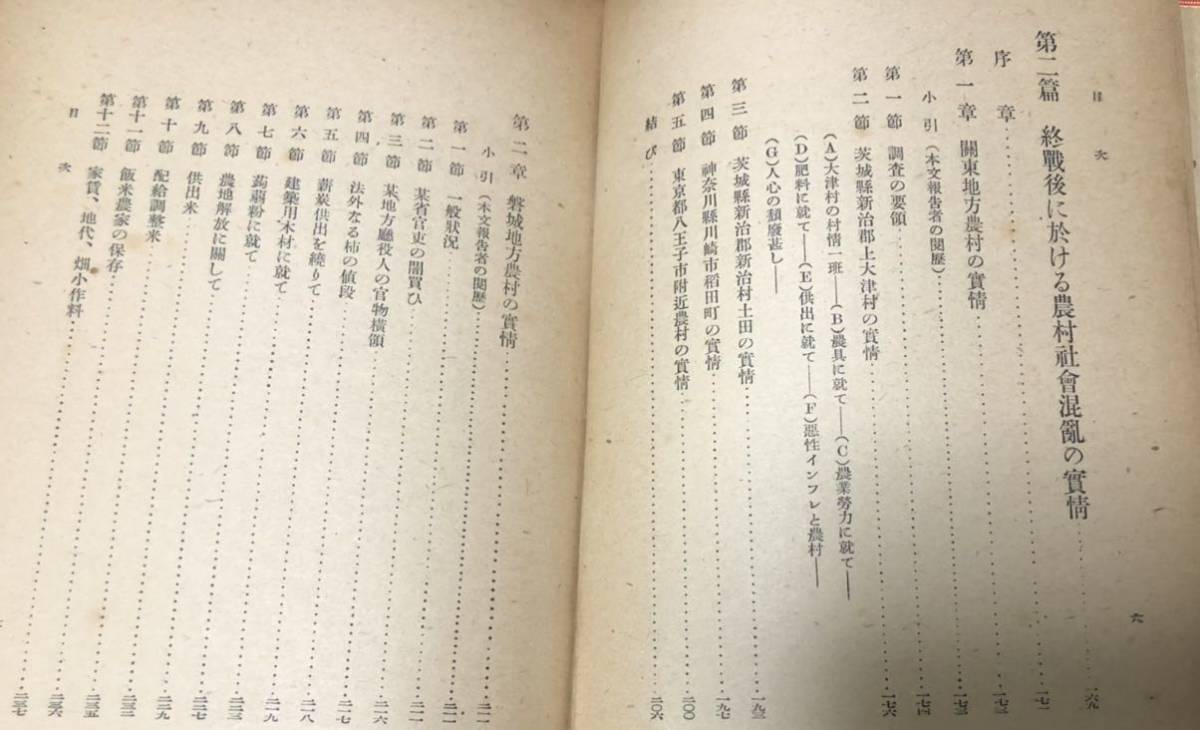 目次
六
第二篇 終戰後に於ける農村社會混亂の實情…………一六九
序章…………一七一
第一章 關東地方農村の實情…………一七三
小引(本文報告者の閱歷)…………一七三
第一節 調査の要領…………一七四
第二節 茨城縣新治郡上大津村の實情…………一七六
(A)大津村の村情一班――(B)農具に就て――(C)農業勞力に就て――
(D)肥料に就て――(E)供出に就て――(F)惡性インフレと農村――
(G)人心の頽廢甚し――
第三節 茨城縣新治郡新治村土田の實情…………一九三
第四節 神奈川縣川崎市稻田町の實情…………一九七
第五節 東京都八王子市附近農村の實情…………二〇〇
結び…………二〇六
第二章 磐城地方農村の實情…………二一一
小引(本文報告者の閱歷)…………二一一
第一節 一般狀況…………二一一
第二節 某省官吏の闇買ひ…………二一六
第三節 某地方廳役人の官物橫領…………二一七
第四節 法外なる柿の値段…………二一八
第五節 薪炭供出を繞りて…………二一九
第六節 建築用木材に就て…………二二三
第七節 蒟蒻粉に就て…………二二七
第八節 農地解放に關して…………二二九
第九節 供出米…………二三三
第十節 配給調整米…………二三五
第十一節 飯米農家の保存…………二三六
第十二節 家賃、地代、畑小作料…………二三七
目次